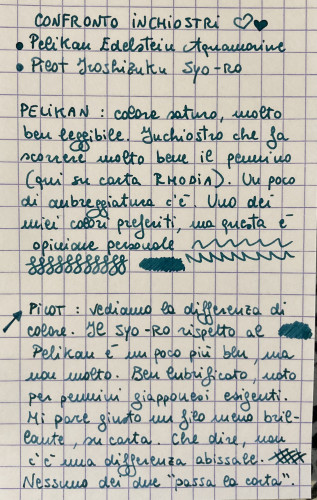 CONFRONTO INCHIOSTRI
• Pelikan Edelstein Aquamarine
• Pilot Iroshizuku Syo-Ro
PELIKAN : colore saturo, molto
ben leggibile. Inchiostro che fa
scorrere molto bene il pennino
(qui su carta RHODIA). Un poco
di ombreggiatura c'è. Uno dei
miei colori preferiti, ma questa è
opinione personale
PILOT : vediamo la differenza di
colore. Il SYO-RO rispetto al
Pelikan è un poco più blu, ma
non molto. Ben lubrificato, noto
per pennini giapponesi esigenti.
Mi pare giusto un filo meno bril-
lante, su carta. Che dire, non
c'è una differenza abissale.
Nessuno dei due "passa la carta".